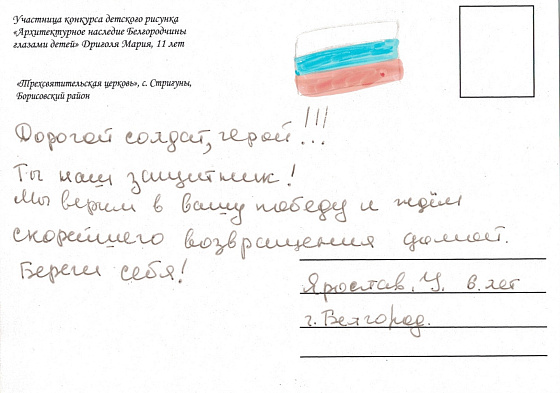 Участница конкурса детского рисунка
«Архитектурное наследие Белгородчины
глазами детей» Дриголя Мария, 11 лет
«Трехсвятительская церковь», с. Стригуны,
Борисовский район
Дорогой солдат, герой!!!
Ты наш защитник!
Мы верим в вашу победу и ждём
скорейшего возвращения домой.
Береги себя!
Ярослав. У. 8. лет
г. Белгород.